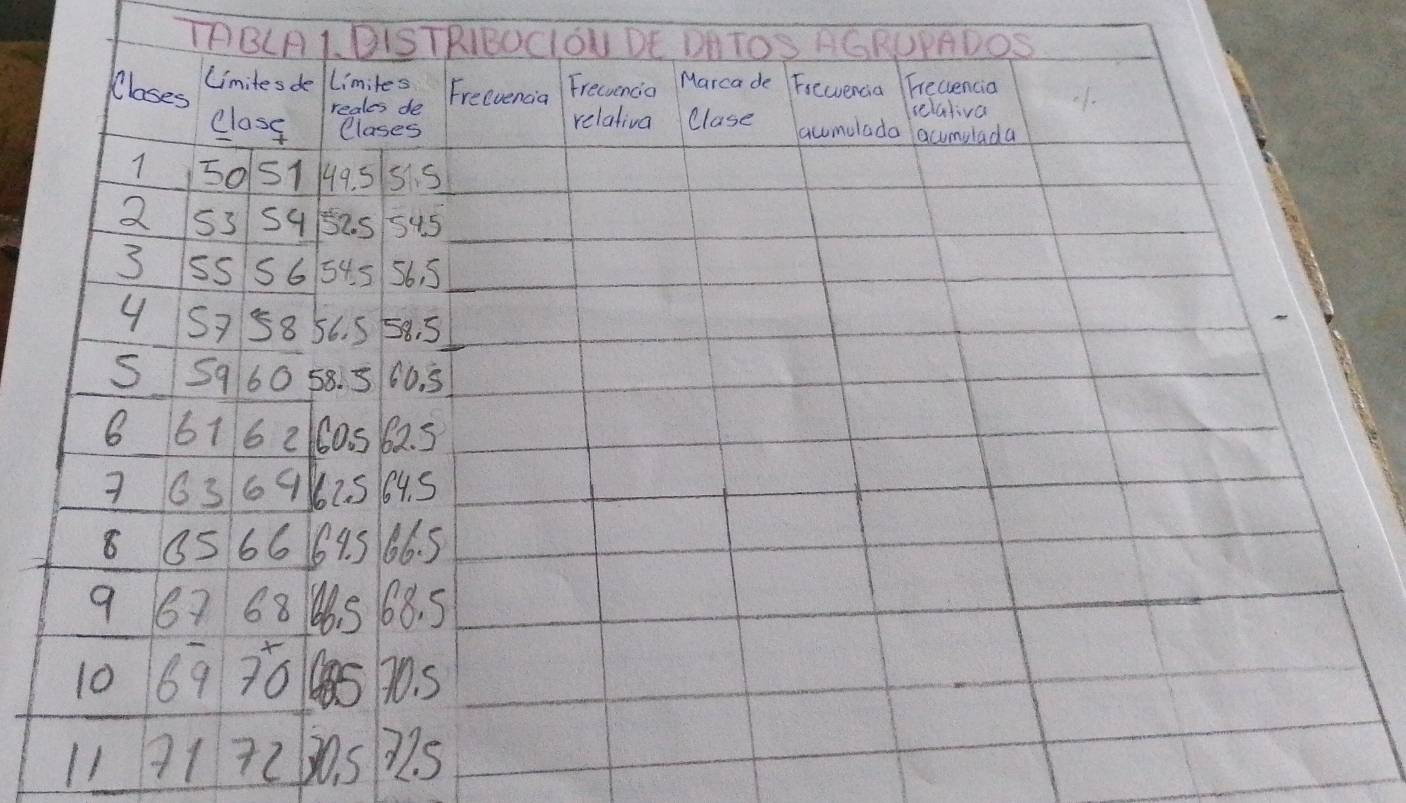 TABLA 1. DISTRIBUCIÓN DE DATOS AGRUPADOS
Clases Límites de Clase Límites reales de Clases Frecuencia Frecuencia relativa Marca de Clase Frecuencia acumulada Frecuencia relativa acumulada %
- +
1 50 51 49.5 51.5
2 53 54 52.5 54.5
3 55 56 54.5 56.5
4 57 58 56.5 58.5
5 59 60 58.5 60.5
6 61 62 60.5 62.5
7 63 64 62.5 64.5
8 65 66 64.5 66.5
9 67 68 66.5 68.5
- +
10 69 70 70.5
11 71 72 70.5 72.5